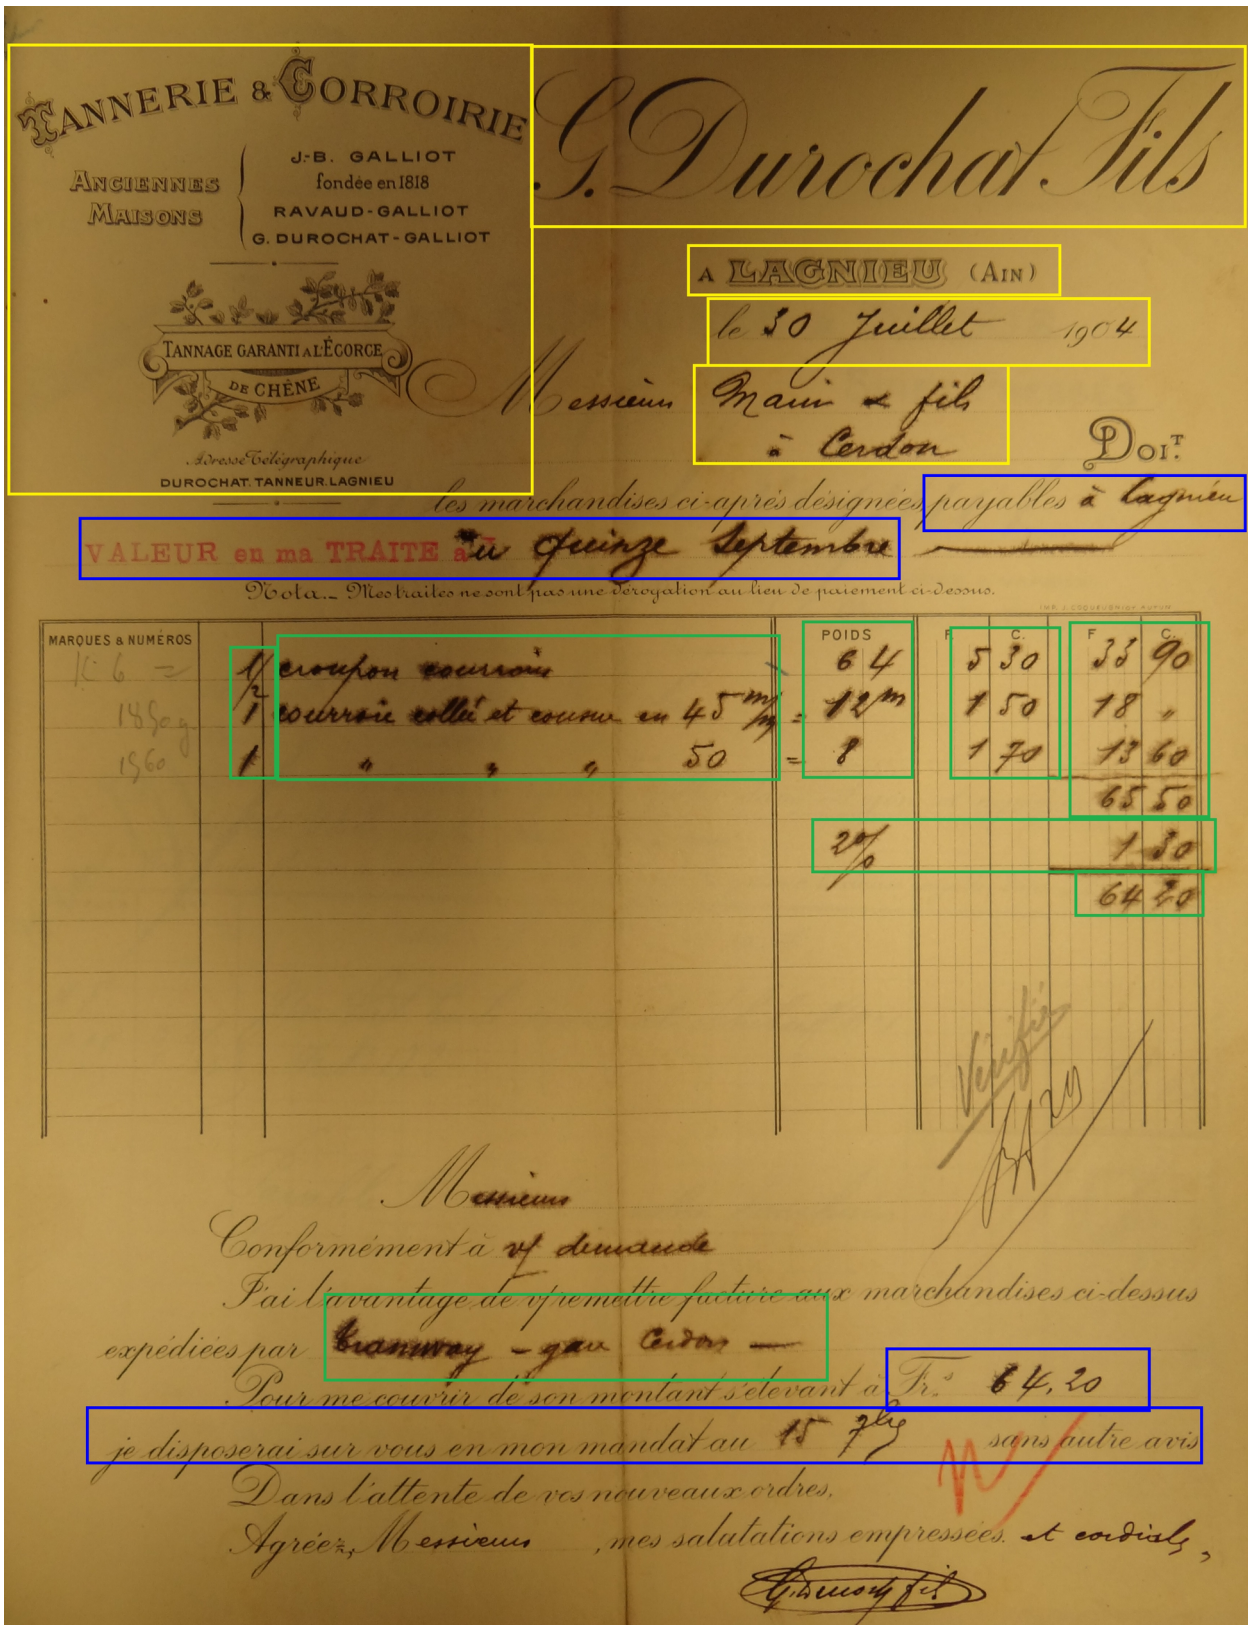 TANNERIE & CORROIRIE
ANCIENNES MAISONS
J.-B. GALLIOT
fondée en 1818
RAVAUD-GALLIOT
G. DUROCHAT-GALLIOT
TANNAGE GARANTI A L'ÉCORCE
DE CHÊNE
Adresse Télégraphique
DUROCHAT. TANNEUR. LAGNIEU
G. Durochat Fils
A LAGNIEU (AIN)
le 30 Juillet 1904
Messieurs Main & fils
à Cerdon
DOIT.
les marchandises ci-après désignées, payables à Lagnieu
VALEUR en ma TRAITE au quinze Septembre
Nota._ Mes traites ne sont pas une dérogation au lieu de paiement ci-dessus.
IMP. J. COQUEUGNIOT. AUTUN
MARQUES & NUMÉROS POIDS F. C. F C.
K 6 = 1/2 croupon courroie 6 4 5 30 33 90
1850 g 1 courroie collée et cousue en 45 m/m = 12m 1 50 18 "
1560 1 " " " 50 = 8 1 70 13 60
65 50
2% 1 30
64 20
Vérifié
Messieurs
Conformément à v/ demande
J'ai l'avantage de v/ remettre facture aux marchandises ci-dessus
expédiées par tramway - gare Cerdon —
Pour me couvrir de son montant s'élevant à Frs 64,20
je disposerai sur vous en mon mandat au 15 7bre sans autre avis
Dans l'attente de vos nouveaux ordres,
Agréez, Messieurs, mes salutations empressées. et cordiales,
G. Durochat fils